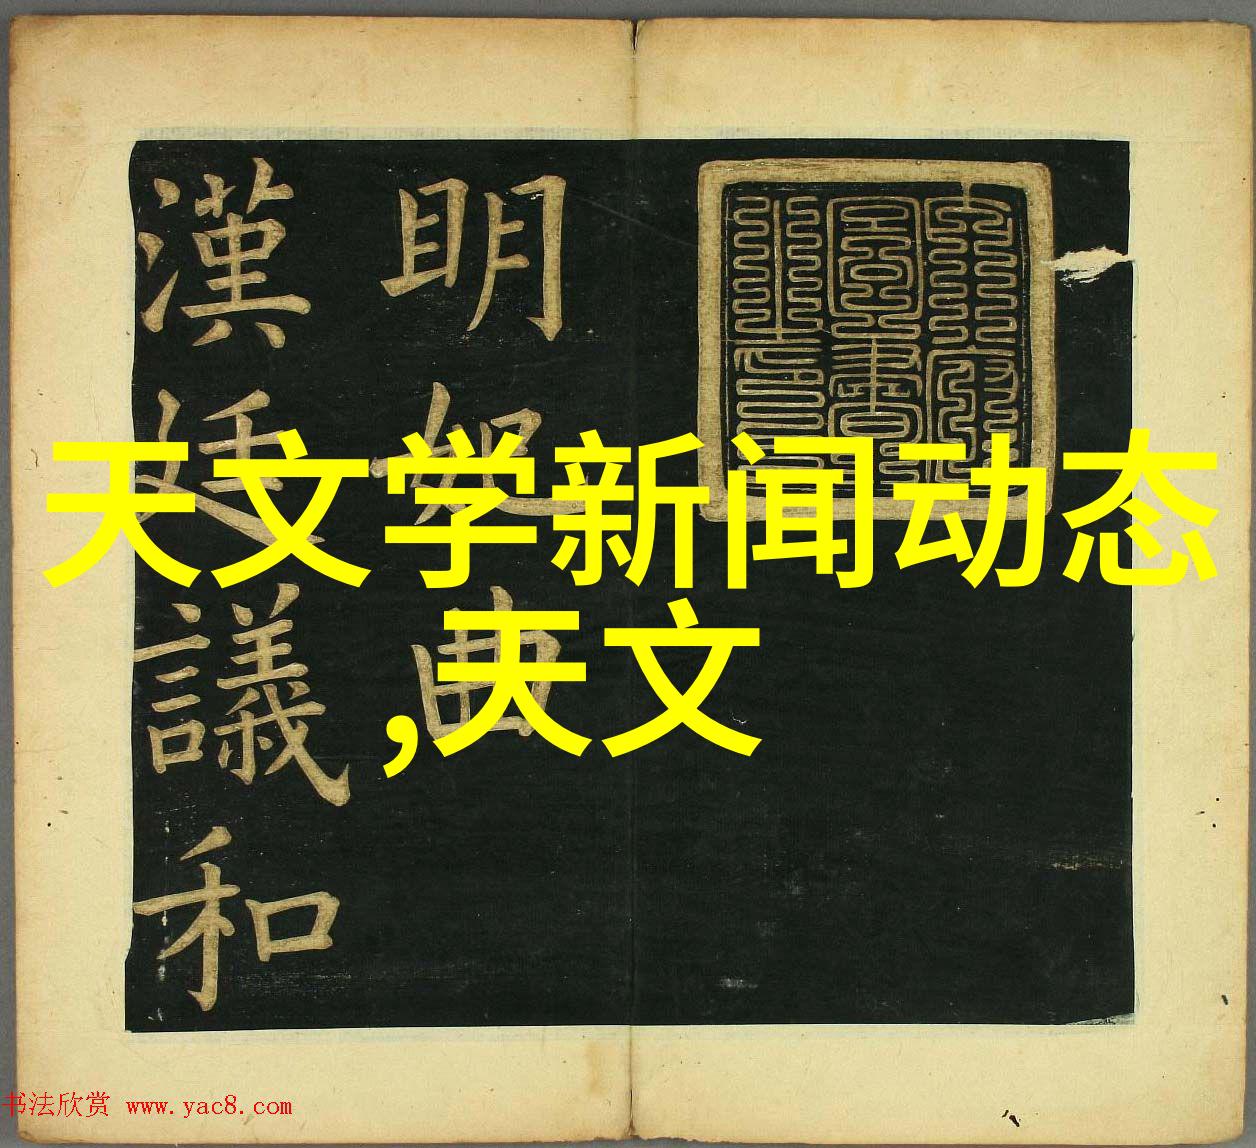 明妃曲
漢妊議和
天文学新闻动态
,天文
书法欣赏 www.yac8.com